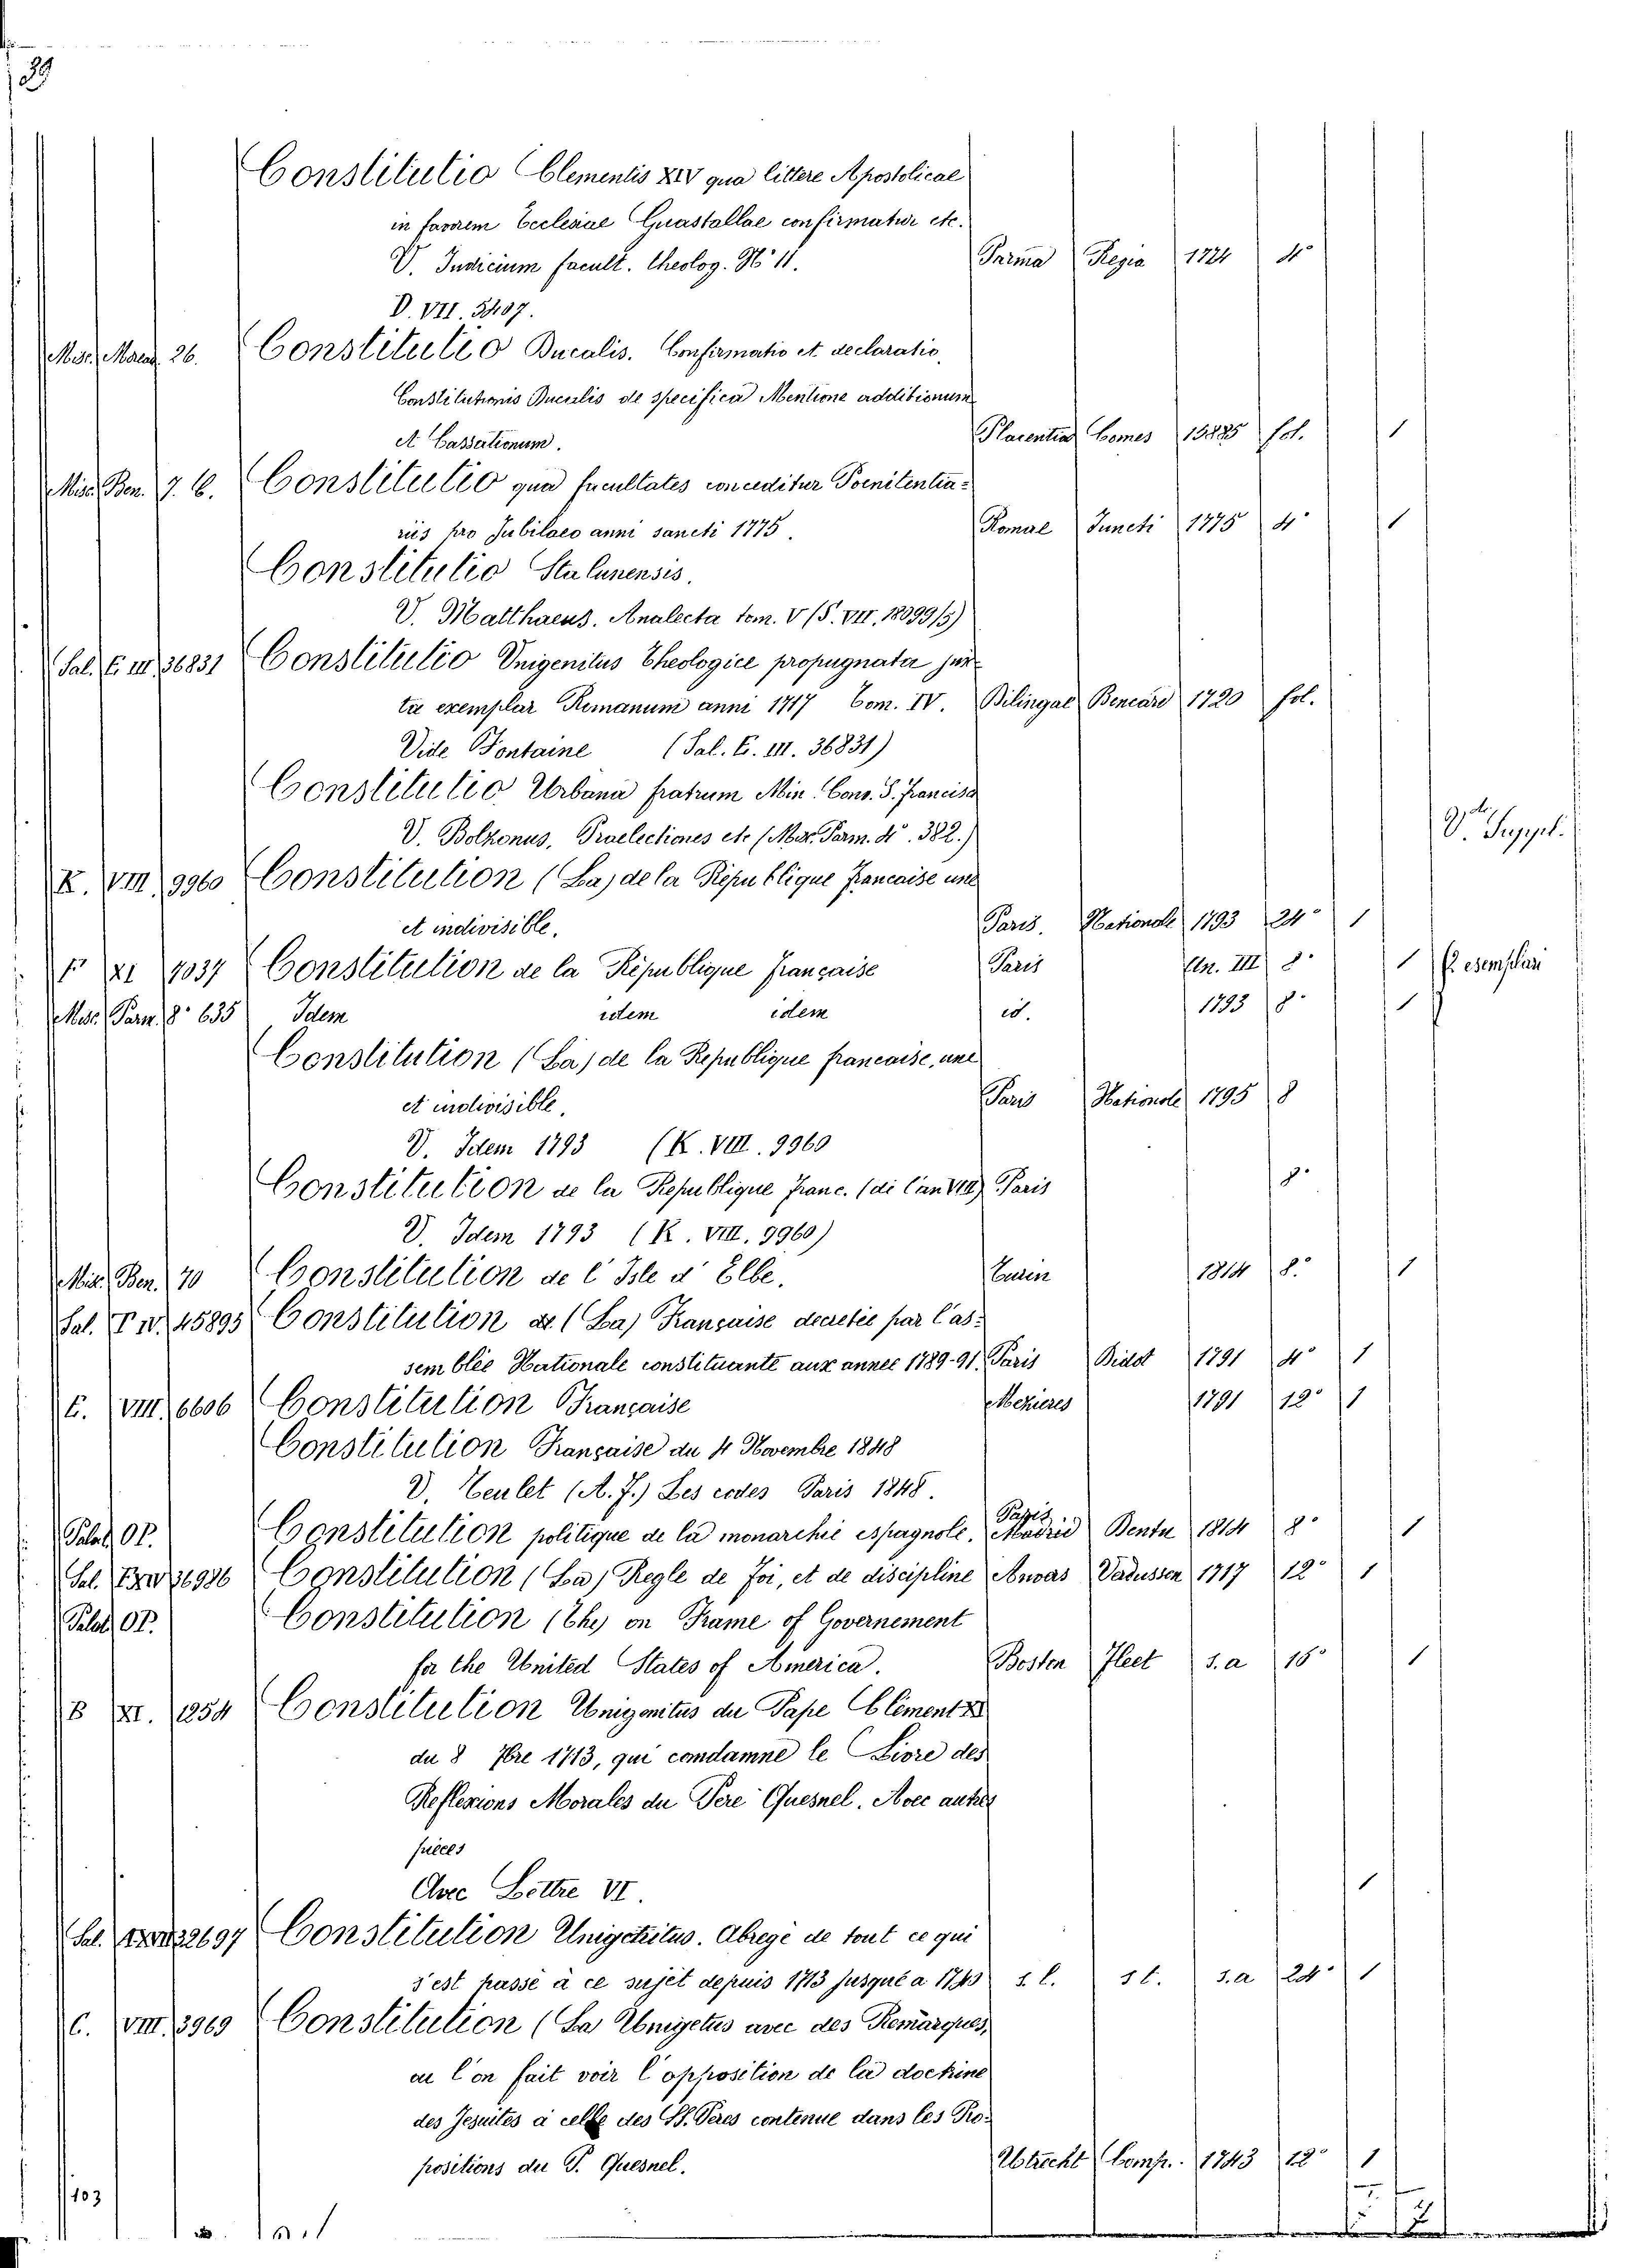 39
Constitutio Clementis XIV qua littere Apostolicae
in favorem Ecclesiae Guastallae confirmatur etc.
V. Iudicium facult. Theolog. No 11. Parma Regia 1724 4o
D. VII. 5407.
Misc. Maced. 26. Constitutio Ducalis. Confirmatio et declaratio
Constitutionis Ducalis de specifica Mentione additionum
et Cassationum. Placentiae Comes fol. 1
Misc. Ben. 7. 6. Constitutio qua facultates conceditur Poenitentia=
riis pro Jubilaeo anni sancti 1775. Romae Juncti 1775 4o 1
Constitutio Stalunensis.
V. Matthaeus. Analecta tom. V (S. VII. 18099/5)
Sal. E. III. 36831 Constitutio Unigenitus Theologice propugnata jux
ta exemplar Romanum anni 1717 Tom. IV. Bilingae Bencard 1720 fol.
Vide Fontaine (Sal. E. III. 36831)
Constitutio Urbana fratrum Min. Conv. S. Francisci
V. Bolzonus, Praelectiones etc (Misc. Parm. 4o. 382.) V. Suppl.
K. VIII. 9960 Constitution (La) de la Republique Francaise une
et indivisible. Paris. Nationale 1793 24o 1
F XI 7037 Constitution de la République française Paris An. III 8o 1 2 esemplari
Misc. Parm. 8o 635 Idem idem idem id. 1793 8o 1
Constitution (La) de la Republique francaise, une
et indivisible. Paris Nationale 1795 8
V. Idem 1793 (K. VIII. 9960
Constitution de la Republique Franc. (de l'an VIII) Paris 8o
V. Idem 1793 (K. VIII. 9960)
Misc. Ben. 70 Constitution de l'Isle d'Elbe. Turin 1814 8o 1
Sal. T IV. 45895 Constitution de (La) Française decretée par l'as=
semblée Nationale constituante aux annee 1789-91. Paris Didot 1791 4o 1
E. VIII. 6606 Constitution Française Mezieres 1791 12o 1
Constitution Française du 4 Novembre 1848
V. Teulet (A. F.) Les codes Paris 1848.
Palat. OP. Constitution politique de la monarchie espagnole. Paris Madrid 1814 8o 1
Sal. 36986 Constitution (La) Regle de foi, et de discipline Anvers Vadussen 1717 12o 1
Palat. OP. Constitution (The) on Frame of Governement
for the United States of America. Boston Fleet s. a 16o 1
B XI. 1254 Constitution Unigenitus du Pape Clément XI
du 8 7bre 1713, qui condamne le Livre des
Reflexions Morales du Pere Quesnel. Avec autres
pièces
Avec Lettre VI. 1
Sal. 32697 Constitution Unigenitus. Abregé de tout ce qui
s'est passé à ce sujet depuis 1713 jusqu'a s. l. s t. s. a 24o 1
C. VIII. 3969 Constitution (La Unigetus avec des Remarques,
ou l'on fait voir l'opposition de la doctrine
des Jesuites à celle des SS. Peres contenue dans les Pro=
positions du P. Quesnel. Utrecht Comp. 1743 12o 1
103